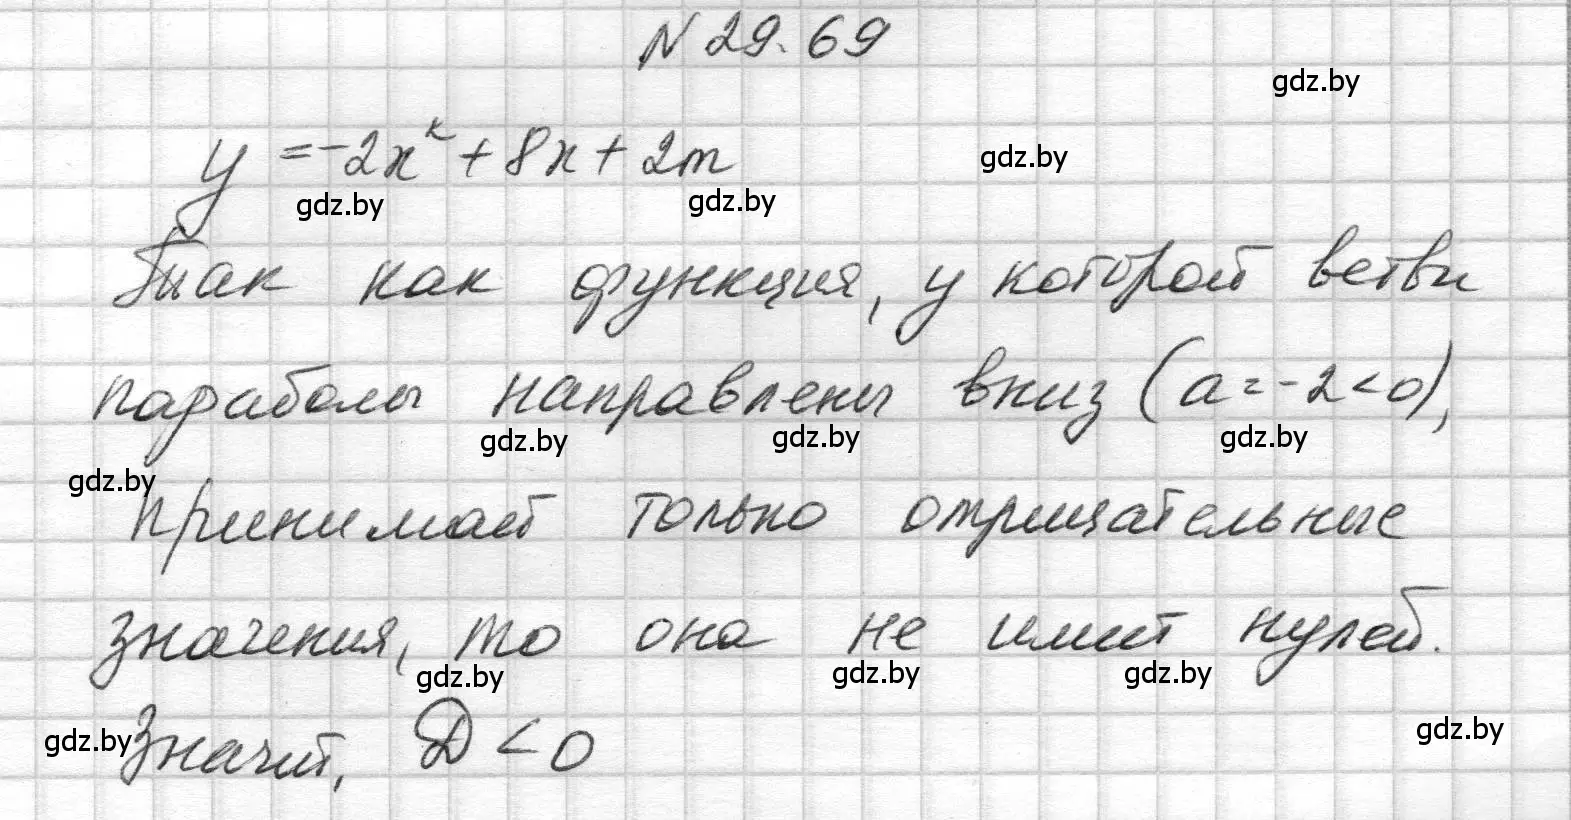 N 29.69
gdz.by
y = -2x² + 8x + 2m
gdz.by
gdz.by
gdz.by
Так как функция, у которой ветви
параболы направлены вниз (a = -2 < 0),
gdz.by
gdz.by
gdz.by
gdz.by
принимает только отрицательные
значения, то она не имеет нулей.
gdz.by
gdz.by
gdz.by
Значит, D < 0
gdz.by
gdz.by